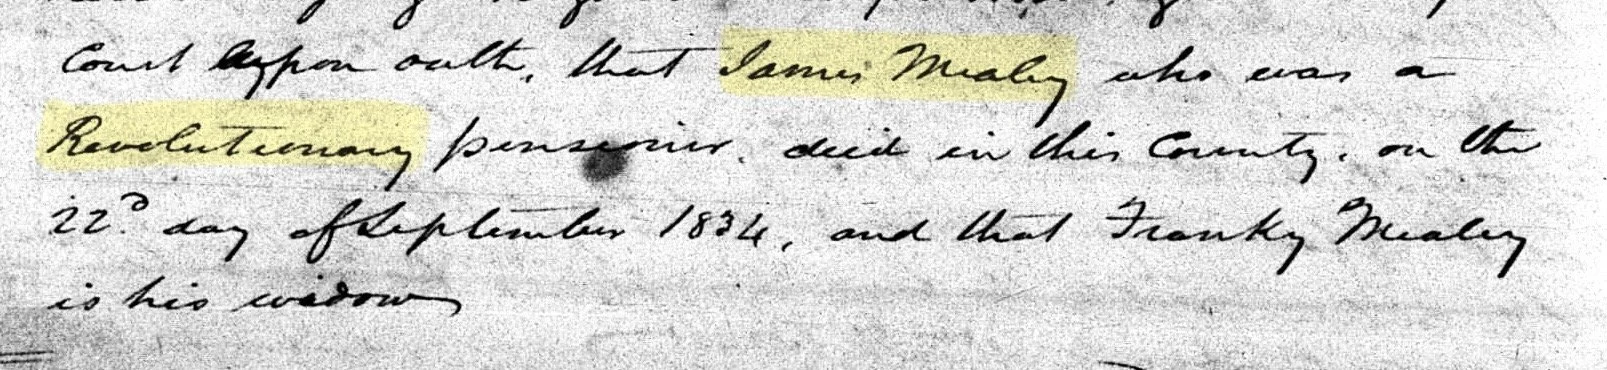 Court upon oath, that James Mealey who was a
Revolutionary pensioner. died in this County, on the
22d. day of September 1834, and that Franky Mealey
is his widow